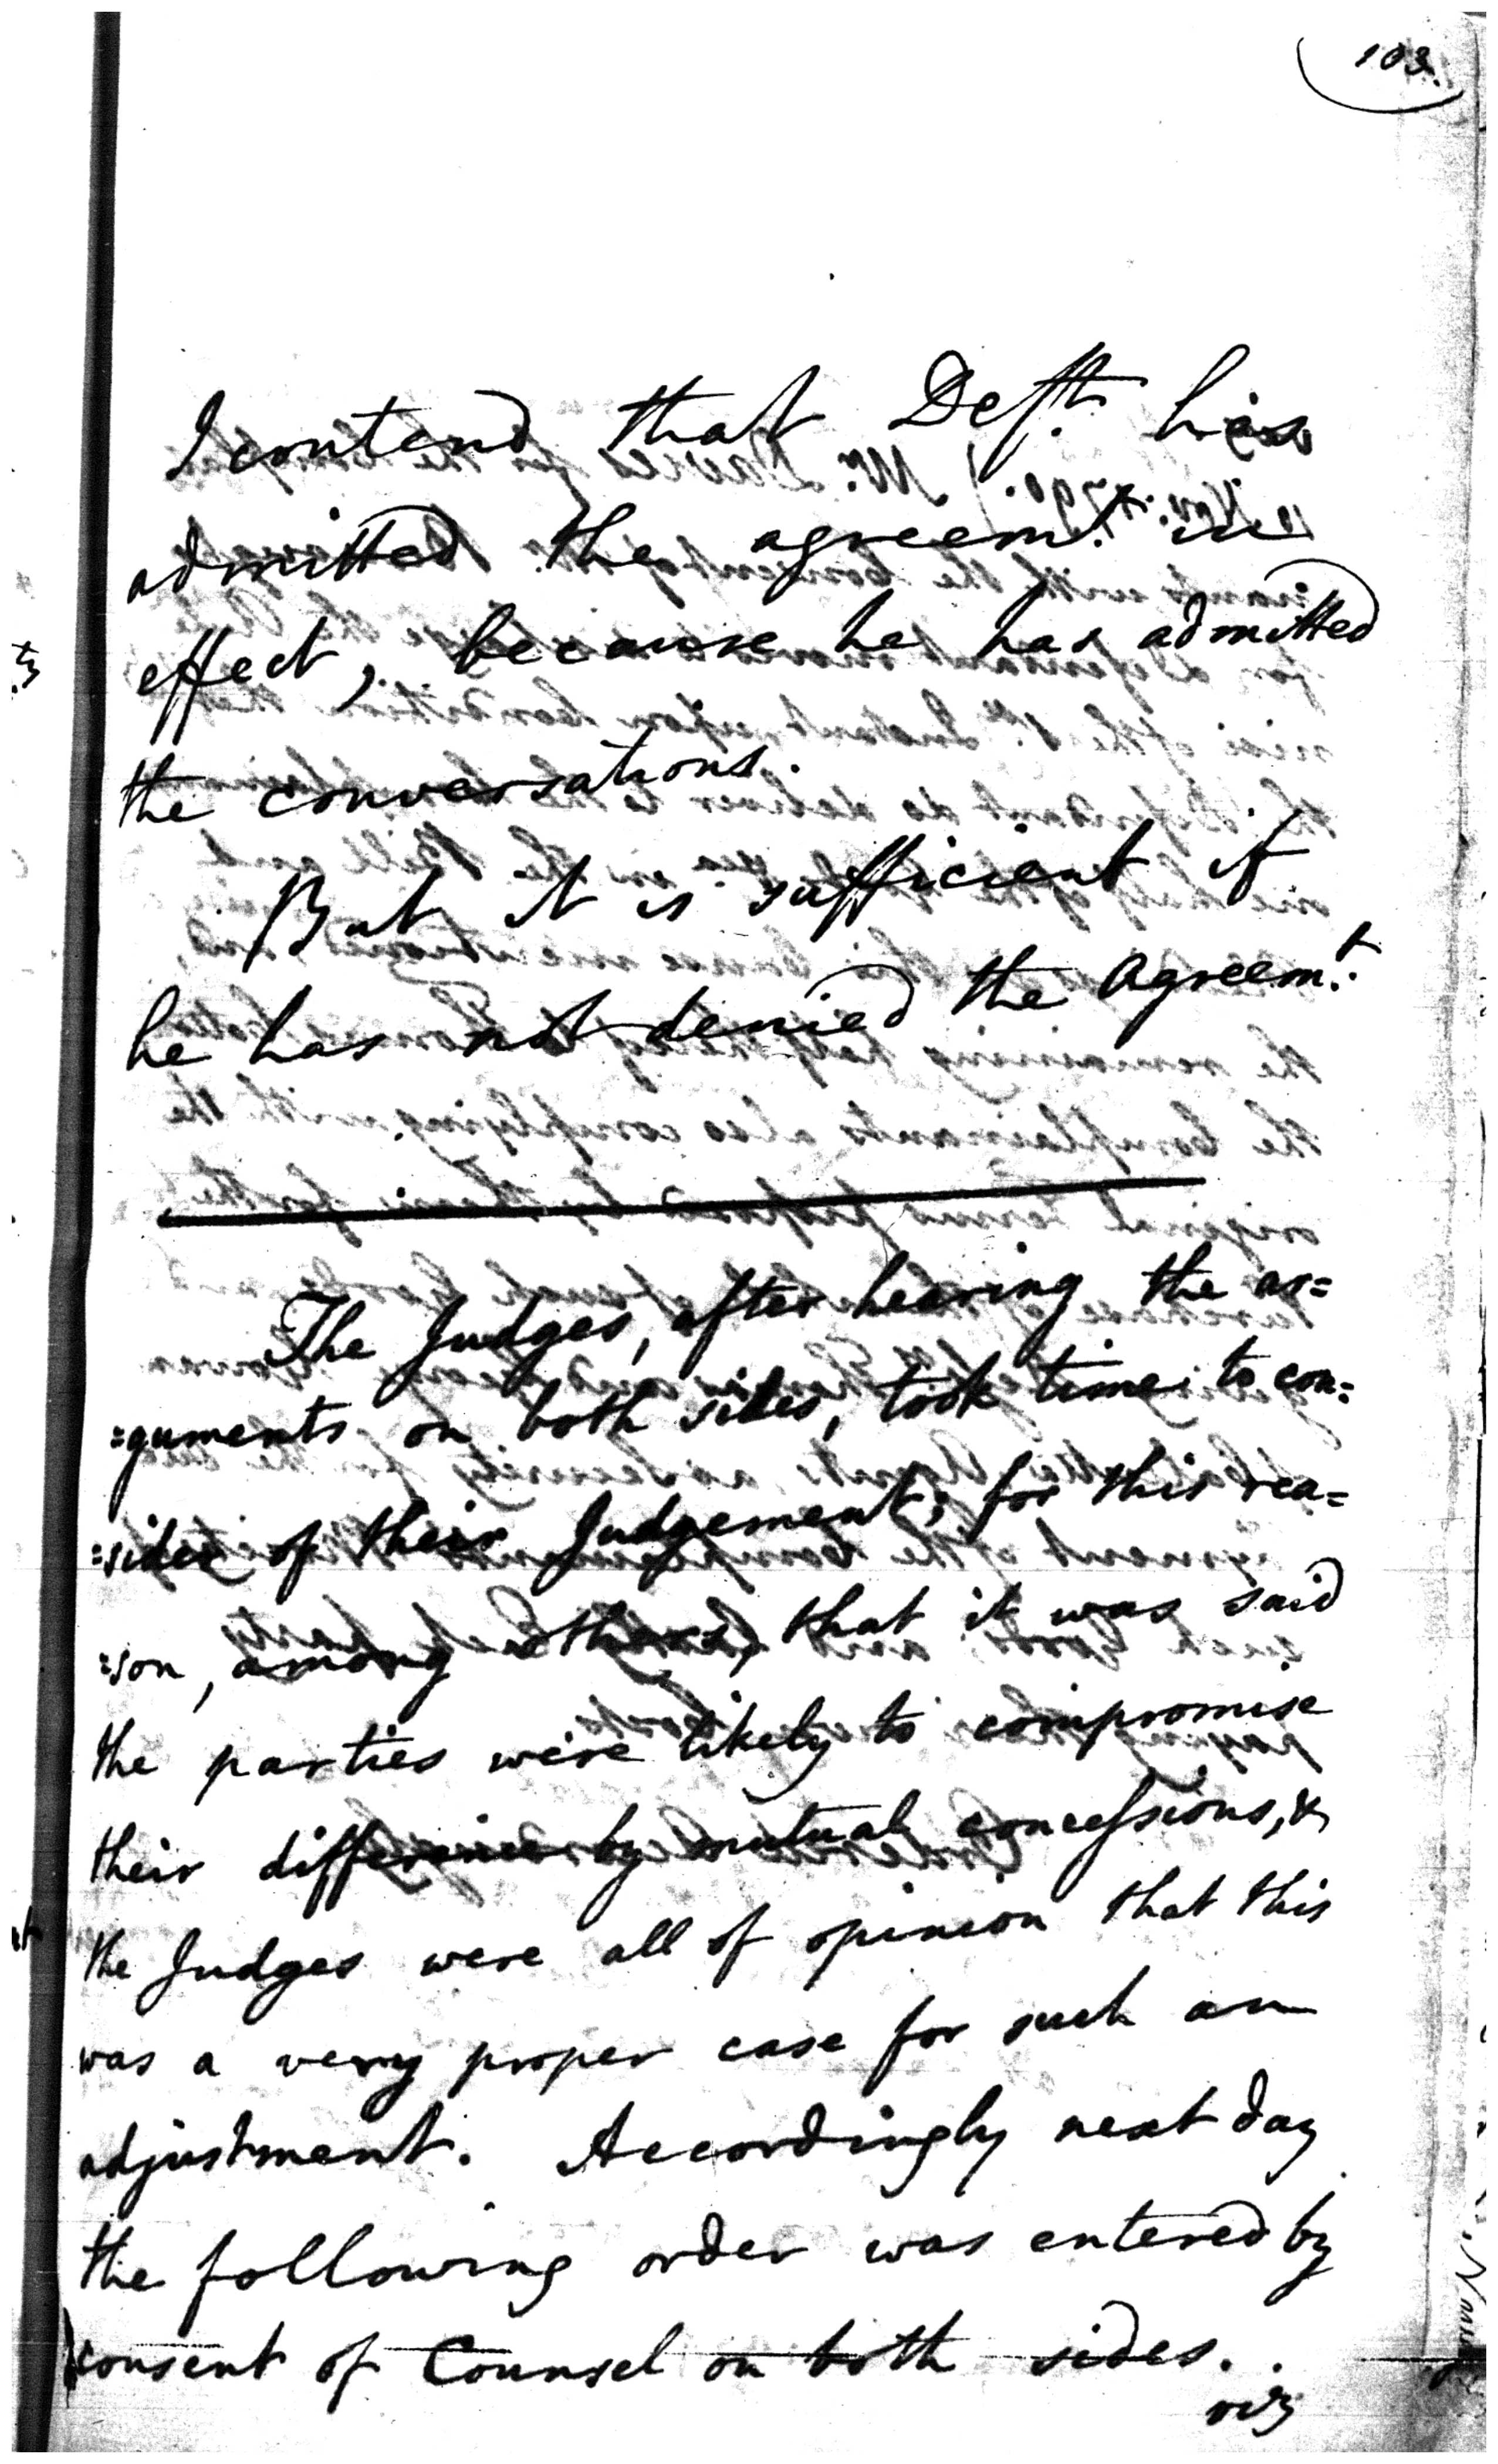 103.
I contend that Deft. has
admitted the agreemt. in
effect, because he has admitted
the conversations.
But it is sufficient if
he has not denied the Agreemt.
The Judges, after hearing the ar=
=guments on both sides, took time to con=
=sider of their Judgement; for this rea=
=son, among others, that it was said
the parties were likely to compromise
their difference by mutual concessions, &
the Judges were all of opinion that this
was a very proper case for such an
adjustment. Accordingly next day
the following order was entered by
consent of Counsel on both sides.
viz